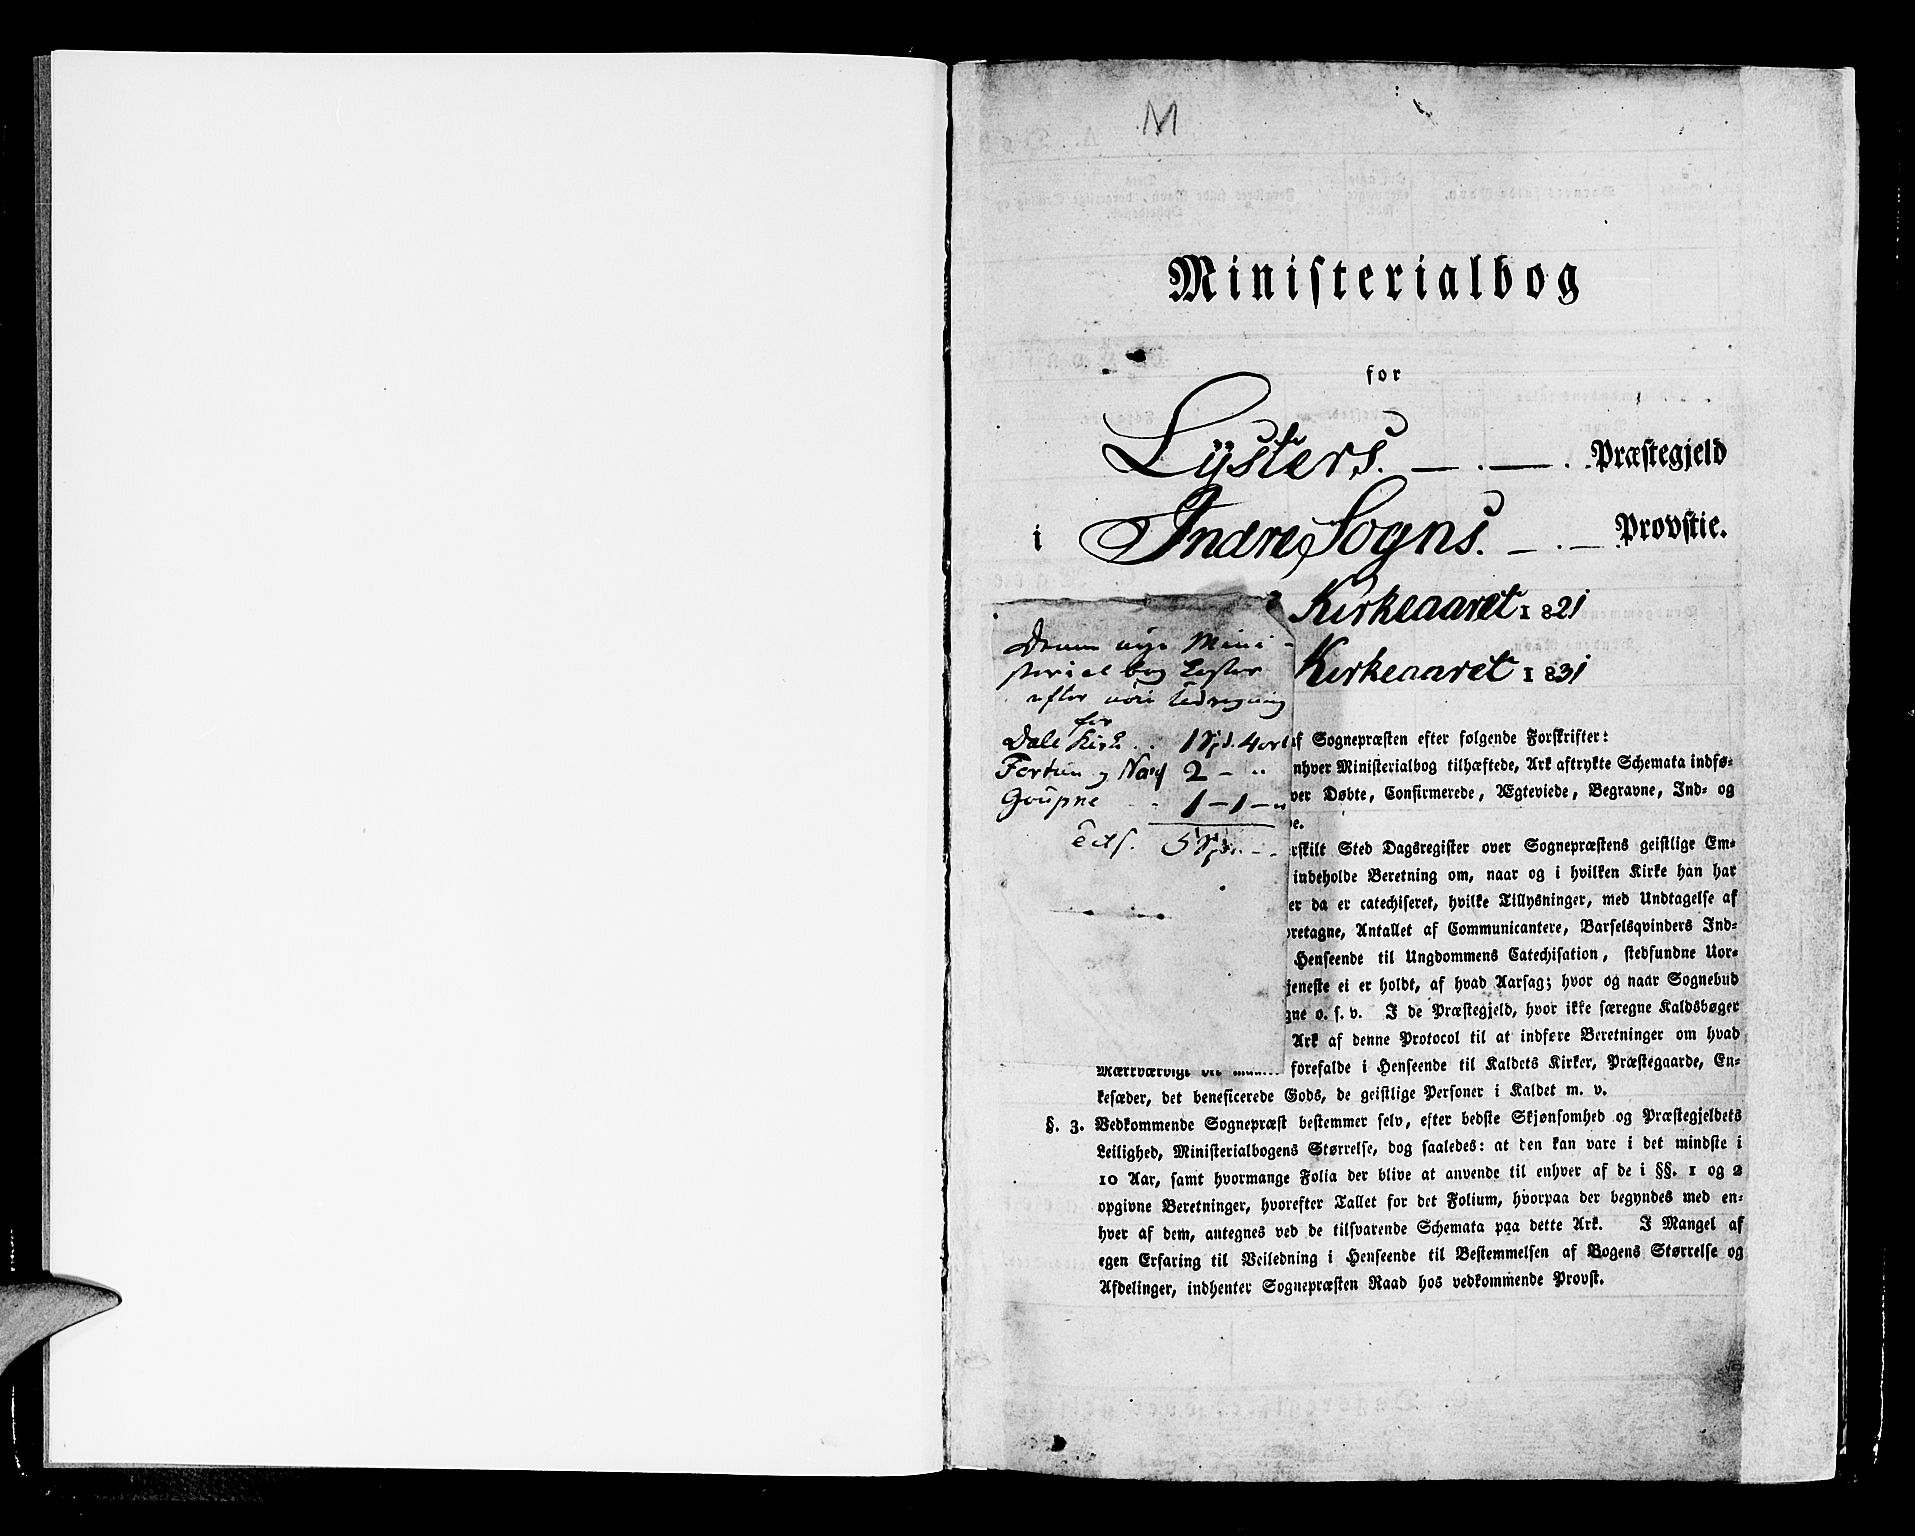 M
Ministerialbog
for
Lysters. Præstegjeld
i Indre Sogns. Provstie.
Kirkeaaret 1821
Kirkeaaret 1831
Denne nye Mini-
sterial bog Lyster
efter
for
Dale Kirke .. 1 Spd. 4 ort
Fortun og Næs 2 — "
Goupne .. 1 — 1 — "
5 Spd. — -
af Sognepræsten efter følgende Forskrifter:
nhver Ministerialbog tilhæftede, Ark aftrykte Schemata indfø-
ver Døbte, Confirmerede, Ægteviede, Begravne, Ind- og
e.
rskilt Sted Dagsregister over Sognepræstens geistlige Em-
indeholde Beretning om, naar og i hvilken Kirke han har
er da er catechiseret, hvilke Tillysninger, med Undtagelse af
retagne, Antallet af Communicantere, Barselsqvinders Ind-
Henseende til Ungdommens Catechisation, stedfundne Uor-
jeneste ei er holdt, af hvad Aarsag; hvor og naar Sognebud
gne o. s. v. I de Præstegjeld, hvor ikke særegne Kaldsbøger
Ark af denne Protocol til at indføre Beretninger om hvad
Mærkværdigt forefalde i Henseende til Kaldets Kirker, Præstegaarde, En-
kesæder, det beneficerede Gods, de geistlige Personer i Kaldet m. v.
§. 3. Vedkommende Sognepræst bestemmer selv, efter bedste Skjønsomhed og Præstegjeldets
Leilighed, Ministerialbogens Størrelse, dog saaledes: at den kan vare i det mindste i
10 Aar, samt hvormange Folia der blive at anvende til enhver af de i §§. 1 og 2
opgivne Beretninger, hvorefter Tallet for det Folium, hvorpaa der begyndes med en-
hver af dem, antegnes ved de tilsvarende Schemata paa dette Ark. I Mangel af
egen Erfaring til Veiledning i Henseende til Bestemmelsen af Bogens Størrelse og
Afdelinger, indhenter Sognepræsten Raad hos vedkommende Provst.